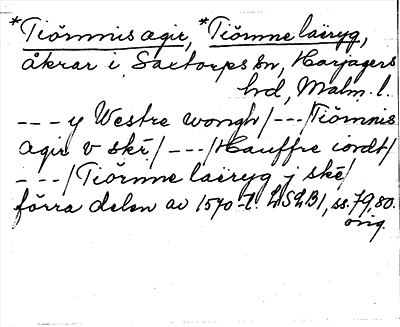 *Tiörnnis agre, *Tiörnne lairyg,
åkrar i Saxtorps sn, Harjagers
hd, Malm. l.
--- y Westre wongh/---/Tiörnnis
agre v ske/---/Hauffre iordt/
---/Tiörnne lairyg j ske/
förra delen av 1570-t. LSLB1, ss. 79, 80.
orig.